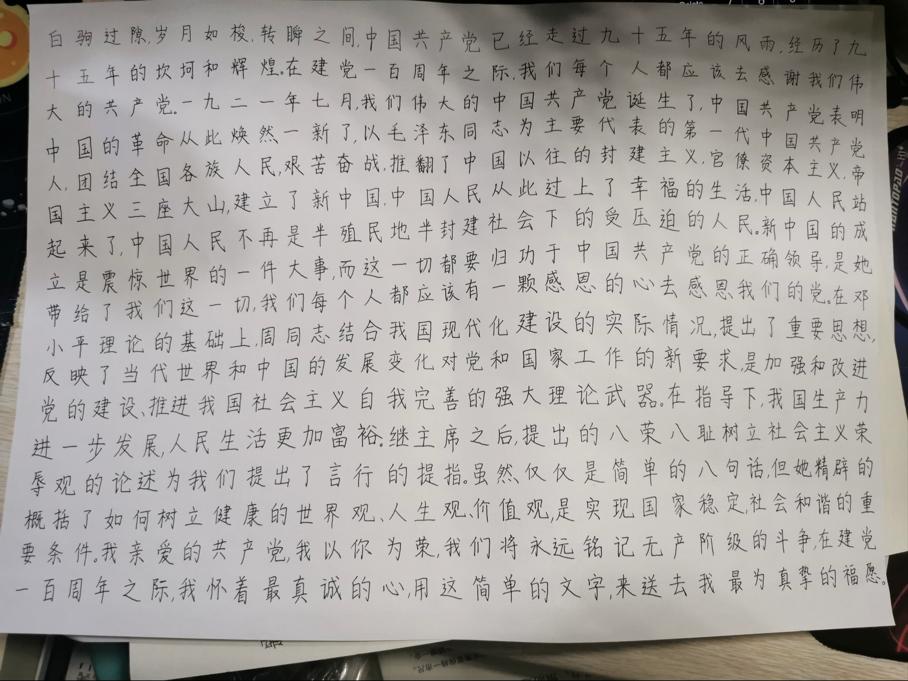 白驹过隙,岁月如梭,转瞬之间,中国共产党已经走过九十五年的风雨,经历了九
十五年的坎坷和辉煌。在建党一百周年之际,我们每个人都应该去感谢我们伟
大的共产党。一九二一年七月,我们伟大的中国共产党诞生了,中国共产党表明
中国的革命从此焕然一新了,以毛泽东同志为主要代表的第一代中国共产党
人,团结全国各族人民,艰苦奋战,推翻了中国以往的封建主义,官僚资本主义,帝
国主义三座大山,建立了新中国,中国人民从此过上了幸福的生活,中国人民站
起来了,中国人民不再是半殖民地半封建社会下的受压迫的人民。新中国的成
立是震惊世界的一件大事,而这一切都要归功于中国共产党的正确领导,是她
带给了我们这一切,我们每个人都应该有一颗感恩的心去感恩我们的党,在邓
小平理论的基础上,周同志结合我国现代化建设的实际情况,提出了重要思想,
反映了当代世界和中国的发展变化对党和国家工作的新要求,是加强和改进
党的建设、推进我国社会主义自我完善的强大理论武器。在指导下,我国生产力
进一步发展,人民生活更加富裕。继主席之后,提出的八荣八耻树立社会主义荣
辱观的论述为我们提出了言行的提指。虽然,仅仅是简单的八句话,但她精辟的
概括了如何树立健康的世界观、人生观、价值观,是实现国家稳定,社会和谐的重
要条件。我亲爱的共产党,我以你为荣,我们将永远铭记无产阶级的斗争,在建党
一百周年之际,我怀着最真诚的心,用这简单的文字,来送去我最为真挚的福愿。